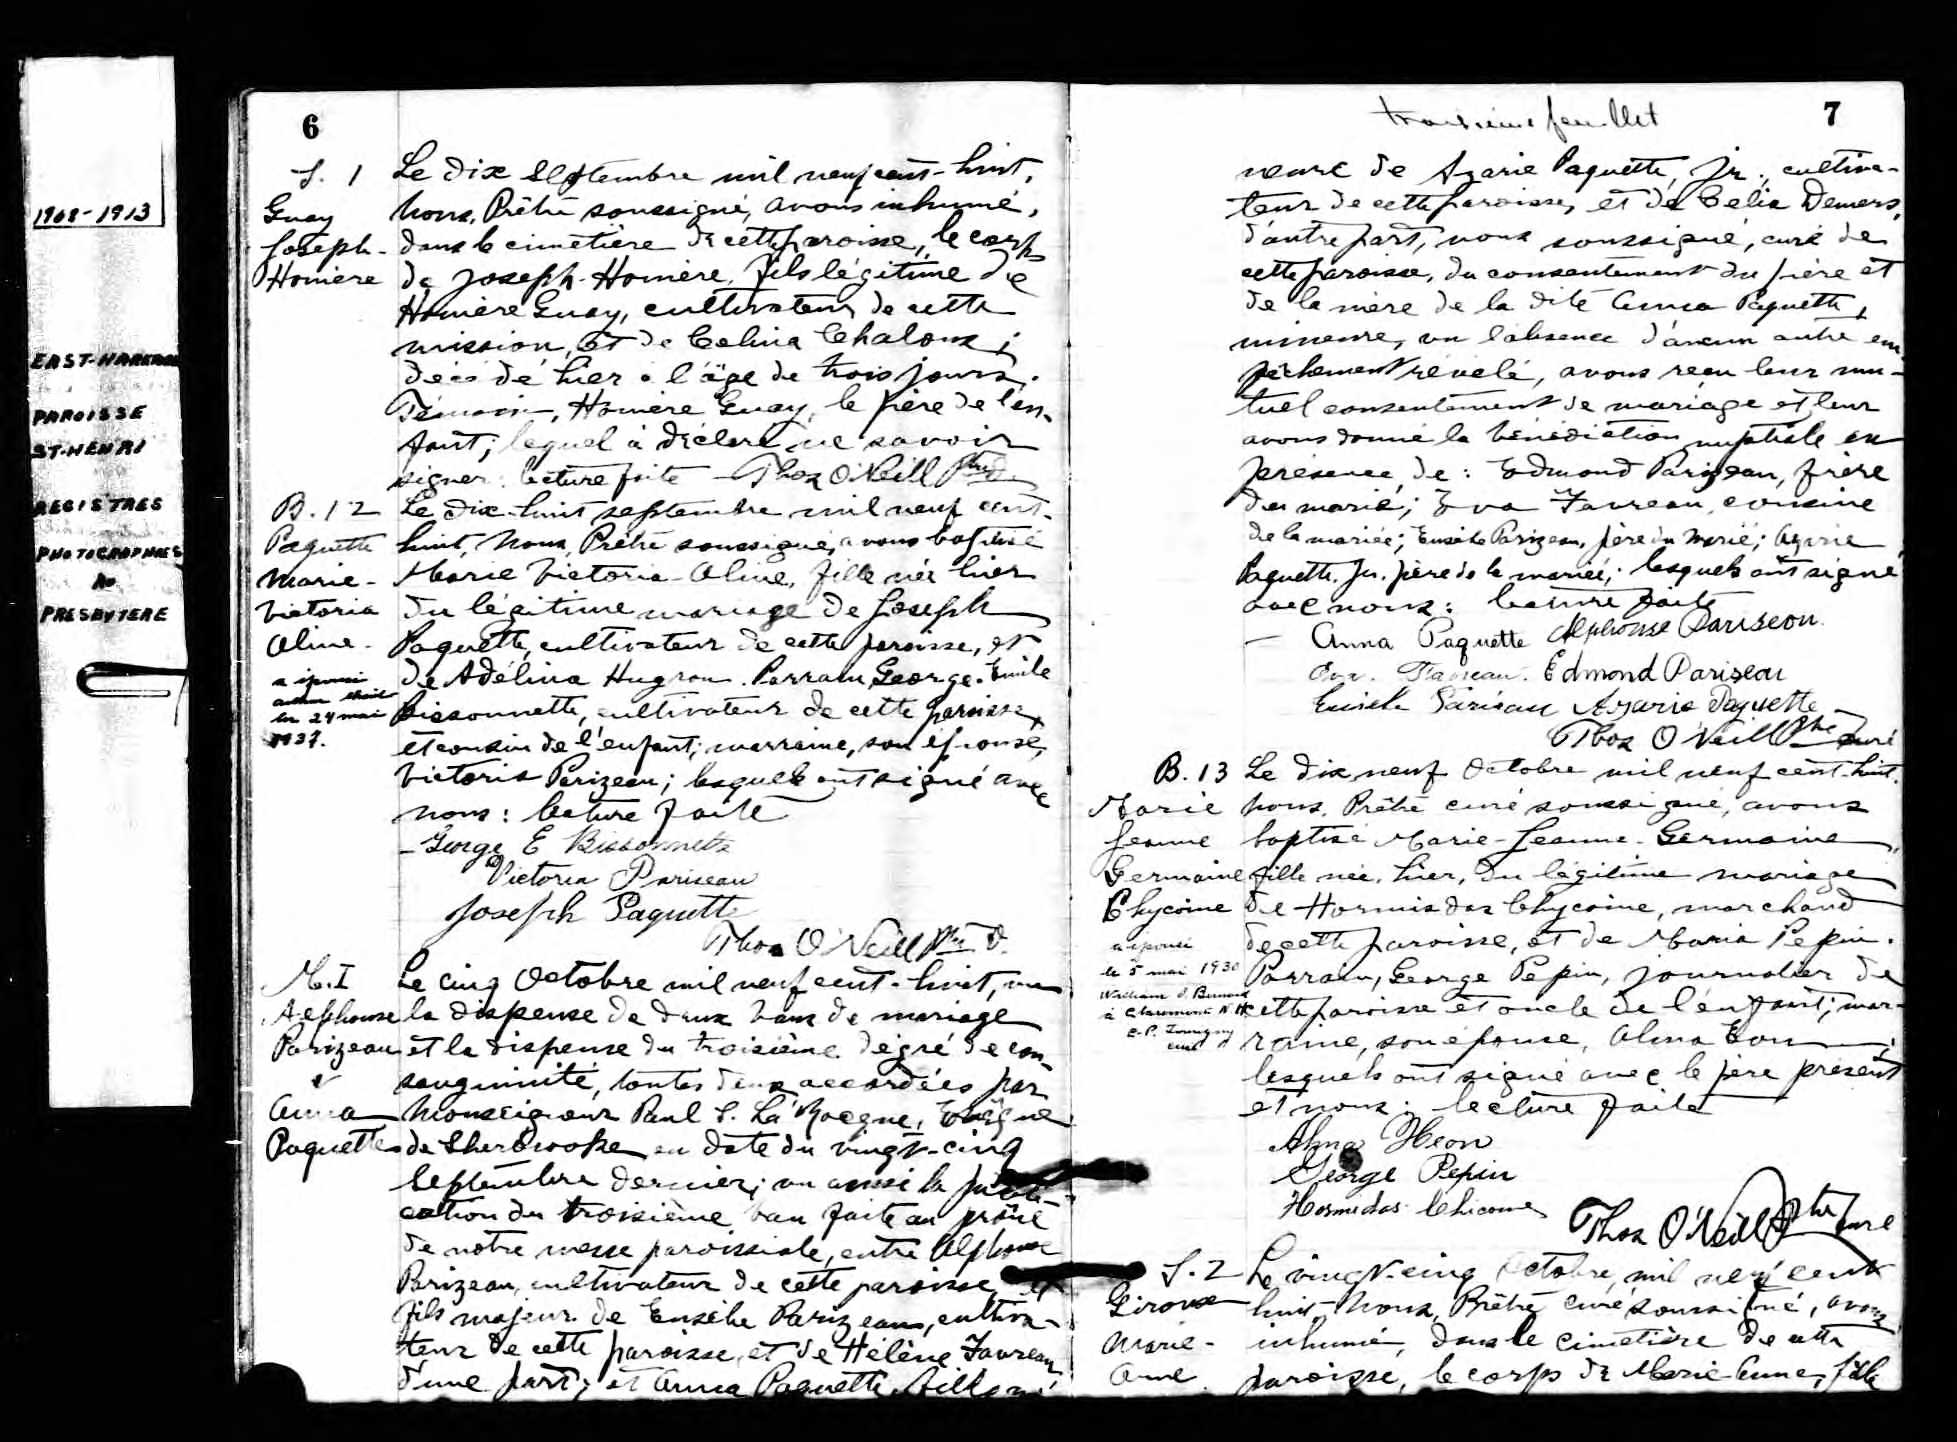 1908-1913
EAST-HEREFORD
PAROISSE
ST-HENRI
REGISTRES
PHOTOGRAPHIES
AU
PRESBYTERE
6
S. 1
Guay
Joseph-
Homère
Le dix septembre mil neuf cent-huit,
nous, Prêtre soussigné, avons inhumé,
dans le cimetière de cette paroisse, le corps
de Joseph-Homère, fils légitime de
Homère Guay, cultivateur de cette
mission, et de Celina Chaloux;
décédé hier à l'âge de trois jours.
Témoin, Homère Guay, le père de l'en-
fant; lequel a déclaré ne savoir
signer. lecture faite Thos O'Neill Ptre
B. 12
Paquette
Marie-
Victoria
Aline.
a épousé
le 24 mai
1937.
Le dix-huit septembre mil neuf cent-
huit, Nous, Prêtre soussigné, avons baptisé
Marie Victoria-Aline, fille née hier
du légitime mariage de Joseph
Paquette, cultivateur de cette paroisse, et
de Adélina Hugron. Parrain, George-Emile
Bissonnette, cultivateur de cette paroisse
et cousin de l'enfant; marraine, son épouse,
Victoria Parizeau; lesquels ont signé avec
nous: lecture faite
George E Bissonnette
Victoria Pariseau
Joseph Paquette
Thos O'Neill Ptre
M. I
Alphonse
Parizeau
&
Anna
Paquette
Le cinq Octobre mil neuf cent-huit, vu
la dispense de deux bans de mariage
et la dispense du troisième dégré de con-
sanguinité, toutes deux accordées par
Monseigneur Paul S. LaRocque, Evêque
de Sherbrooke en date du vingt-cinq
Septembre dernier; vu aussi la publi-
cation du troisième ban faite au prône
de notre messe paroissiale, entre Alphonse
Parizeau, cultivateur de cette paroisse,
fils majeur de Eusèbe Parizeau, cultiva-
teur de cette paroisse, et de Hélène Favreau
d'une part; et Anna Paquette, fille mi
troisième feuillet
7
neure de Azarie Paquette, jr., cultiva-
teur de cette paroisse, et de Celia Demers,
d'autre part, nous soussigné, curé de
cette paroisse, du consentement du père et
de la mère de la dite Anna Paquette,
mineure, vu l'absence d'aucun autre em-
pêchement révélé, avons reçu leur mu-
tuel consentement de mariage et leur
avons donné la bénédiction nuptiale en
présence de: Edmond Parizeau, frère
du marié; Eva Favreau, cousine
de la mariée; Eusèbe Parizeau, père du marié; Azarie
Paquette, Jr. père de la mariée; lesquels ont signé
avec nous: lecture faite
Anna Paquette Alphonse Pariseau
Eva Favreau. Edmond Pariseau
Eusèbe Pariseau Azarie Paquette
Thos O'Neill Ptre Curé
B. 13
Marie
Jeanne
Germaine
Chycoine
a épousé
le 5 mai 1930
à Claremont N H
curé
Le dix neuf Octobre mil neuf cent-huit,
nous, Prêtre curé soussigné, avons
baptisé Marie-Jeanne-Germaine,
fille née, hier, du légitime mariage
de Hormisdas Chycoine, marchand
de cette paroisse, et de Maria Pepin.
Parrain, George Pepin, journalier de
cette paroisse et oncle de l'enfant; mar-
raine, son épouse, Alma Eon;
lesquels ont signé avec le père présent
et nous: lecture faite
Alma Heon
George Pepin
Hormidas Chicoine
Thos O'Neill Ptre Curé
S. 2
Giroux
Marie-
Anne
Le vingt-cinq Octobre, mil neuf cent
huit, Nous, Prêtre curé soussigné, avons
inhumé, dans le cimetière de cette
paroisse, le corps de Marie-Anne, fille